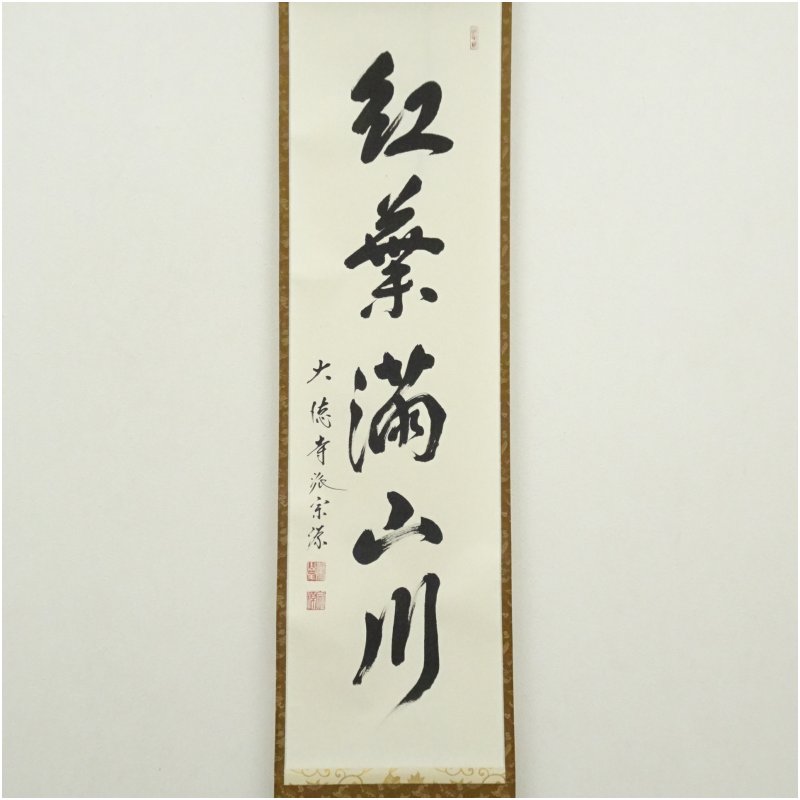 紅葉満山川
大徳寺派宗潔